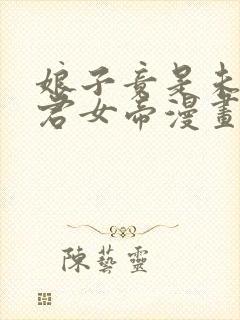 娘子竟是未
君女帝漫畫
陳藝靈